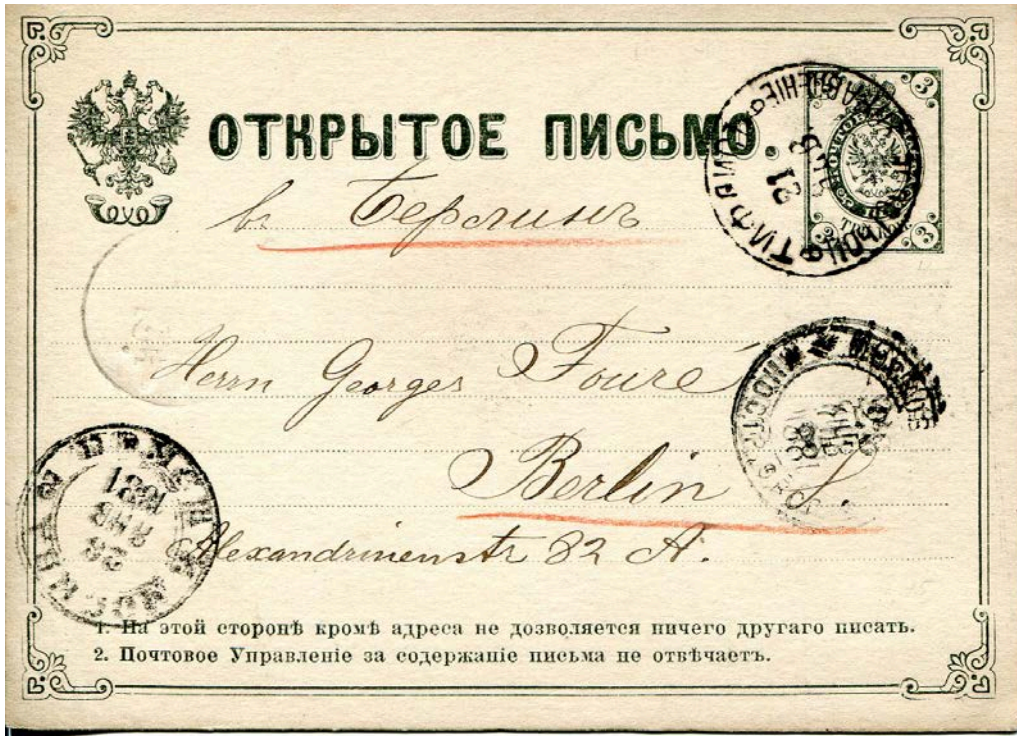 ОТКРЫТОЕ ПИСЬМО.
3 3
въ Берлинъ
3 3
Herrn Georges Fouré
Berlin S.
Alexandrinenstr 82 A.
28 ЯНВ 1881
МОСКВА
1. На этой сторонѣ кромѣ адреса не дозволяется ничего другаго писать.
2. Почтовое Управленіе за содержаніе письма не отвѣчаетъ.